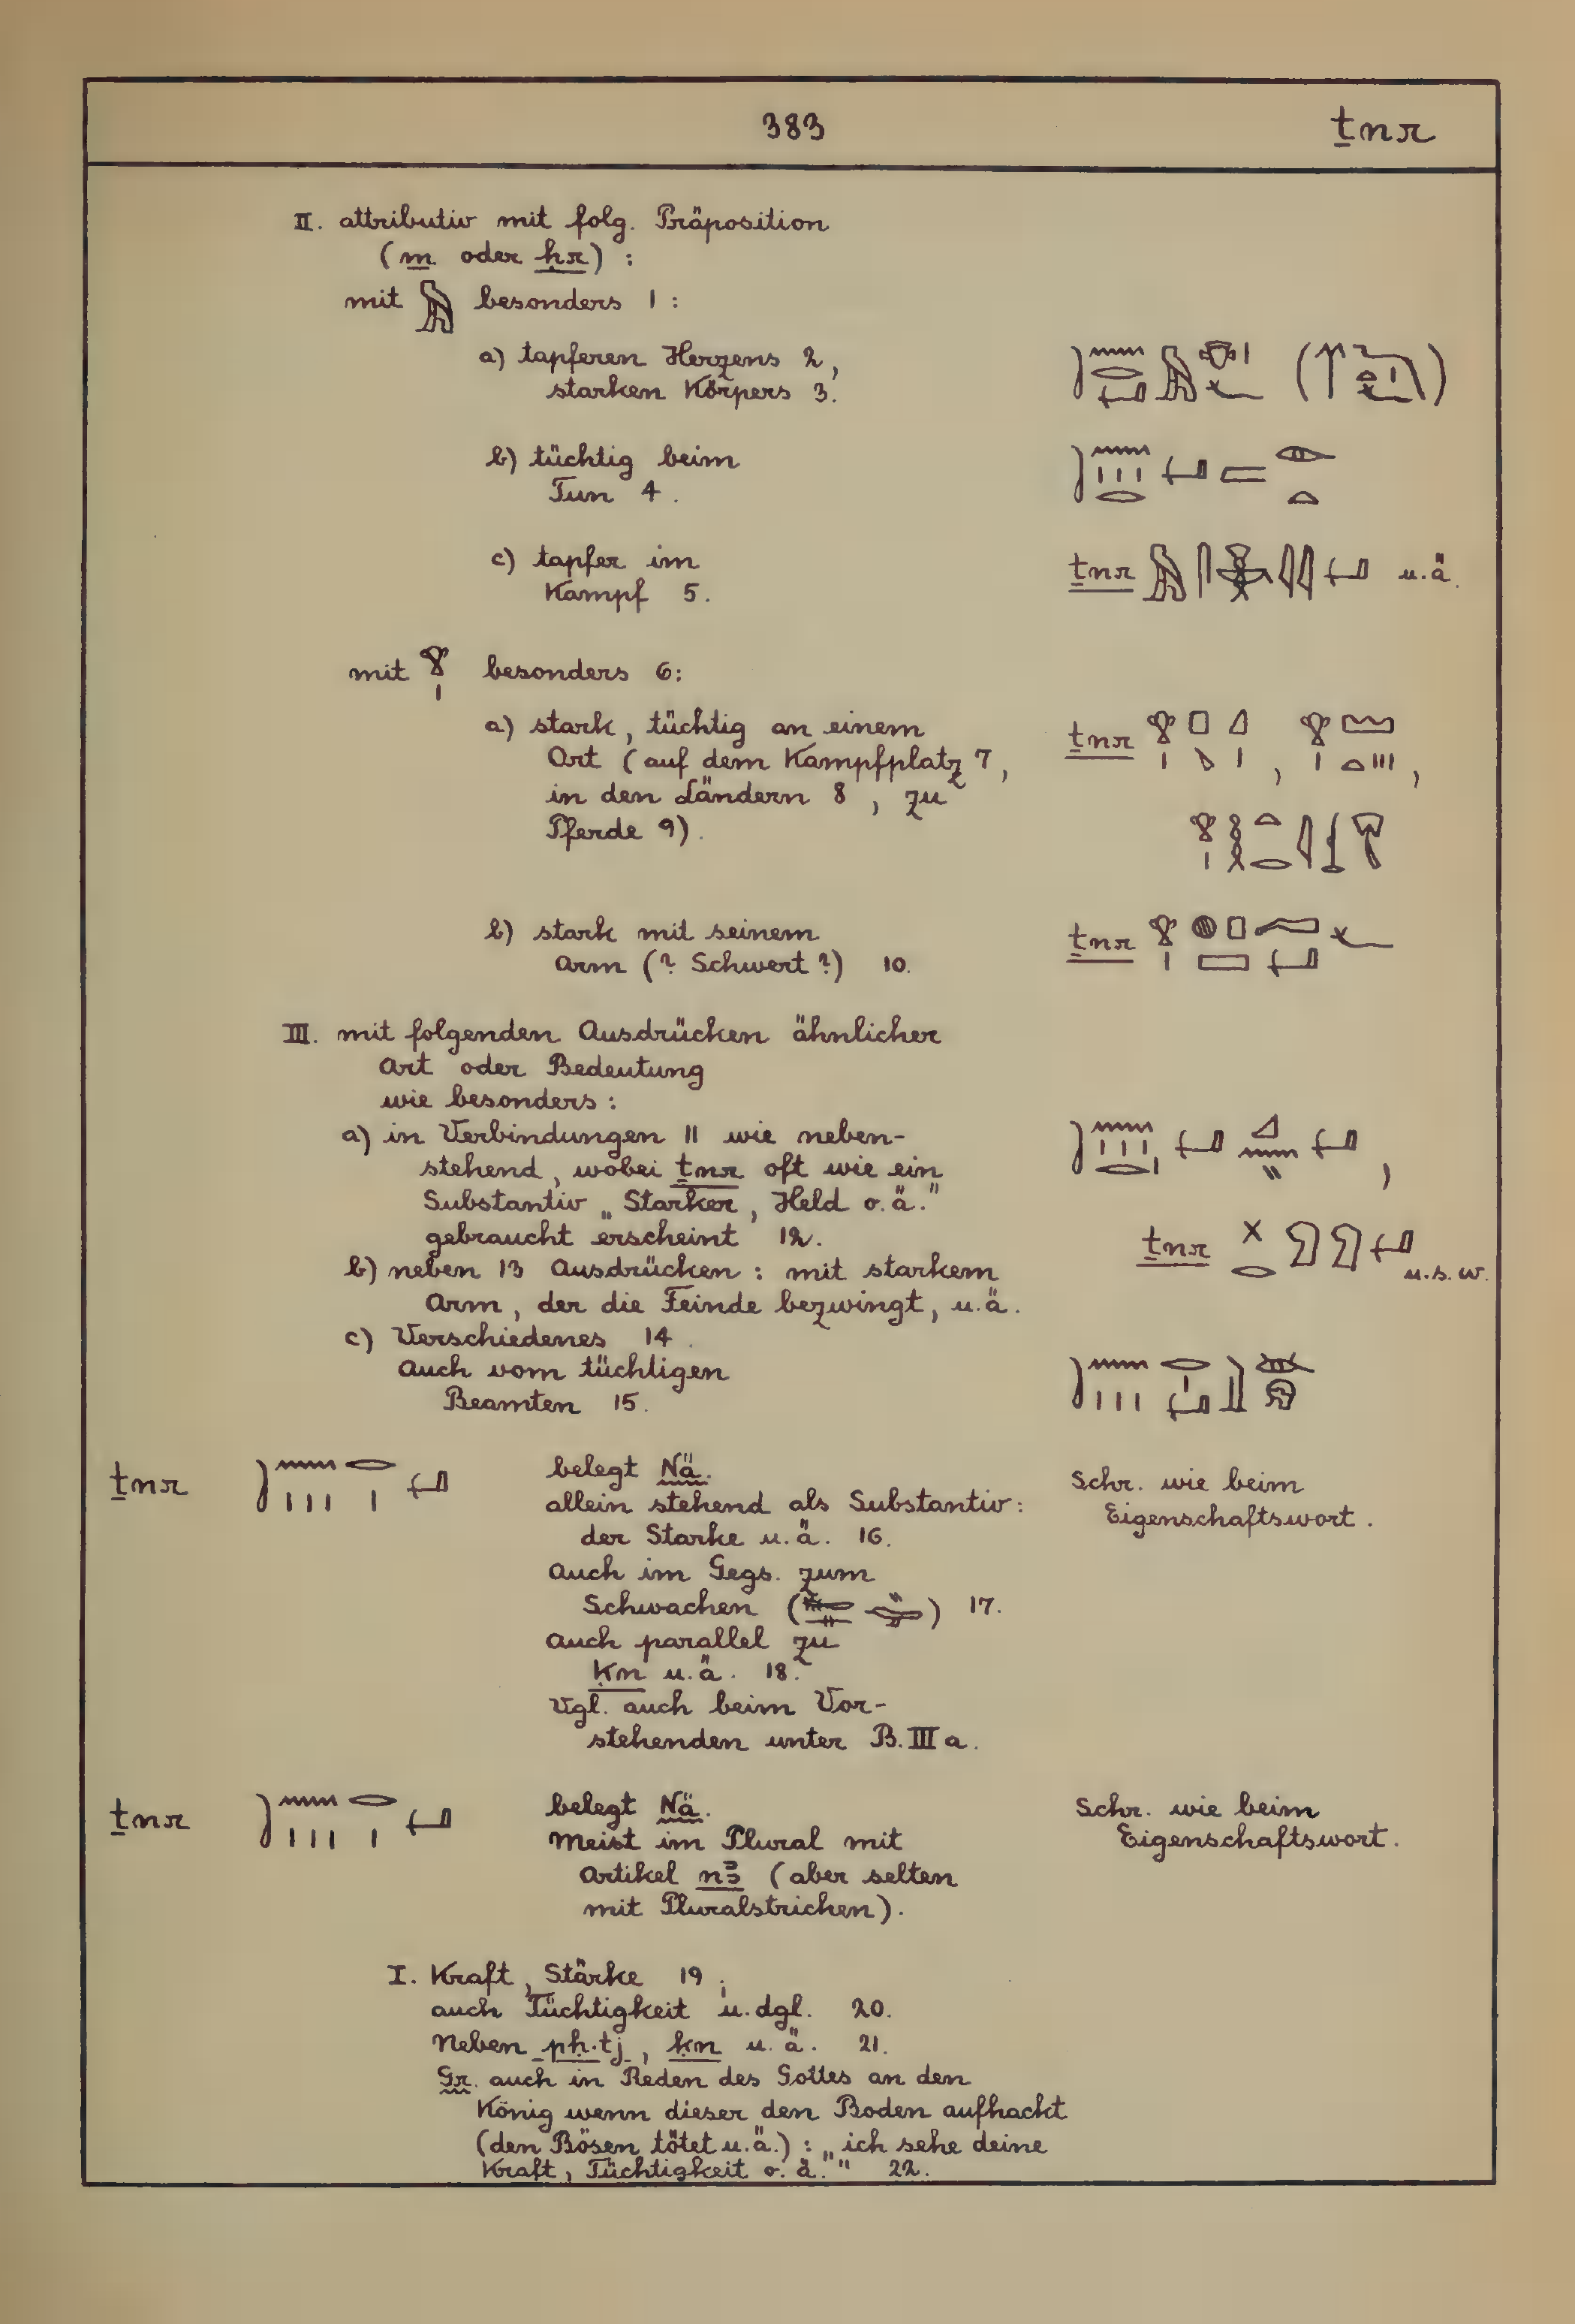 383
ṯnr
II. attributiv mit folg. Präposition
(m oder ḥr) :
mit besonders 1 :
a) tapferen Herzens 2,
starken Körpers 3.
b) tüchtig beim
Tun 4.
c) tapfer im
Kampf 5.
ṯnr u.ä.
mit besonders 6:
a) stark, tüchtig an einem
Ort (auf dem Kampfplatz 7,
in den Ländern 8, zu
Pferde 9).
ṯnr
b) stark mit seinem
Arm (? Schwert ?) 10.
ṯnr
III. mit folgenden Ausdrücken ähnlicher
Art oder Bedeutung
wie besonders :
a) in Verbindungen 11 wie neben-
stehend, wobei ṯnr oft wie ein
Substantiv „Starker, Held o.ä."
gebraucht erscheint 12.
ṯnr u.s.w.
b) neben 13 Ausdrücken : mit starkem
Arm, der die Feinde bezwingt, u.ä.
c) Verschiedenes 14.
Auch vom tüchtigen
Beamten 15.
ṯnr belegt Nä. Schr. wie beim
allein stehend als Substantiv : Eigenschaftswort.
der Starke u.ä. 16.
Auch im Gegs. zum
Schwachen ( ) 17.
Auch parallel zu
ḳn u.ä. 18.
Vgl. auch beim Vor-
stehenden unter B. III a.
ṯnr belegt Nä. Schr. wie beim
Meist im Plural mit Eigenschaftswort.
Artikel nꜣ (aber selten
mit Pluralstrichen).
I. Kraft, Stärke 19;
auch Tüchtigkeit u. dgl. 20.
Neben pḥ.tj, ḳn u. ä. 21.
Gr. auch in Reden des Gottes an den
König wenn dieser den Boden aufhackt
(den Bösen tötet u.ä.) : „ich sehe deine
Kraft, Tüchtigkeit o. ä." 22.